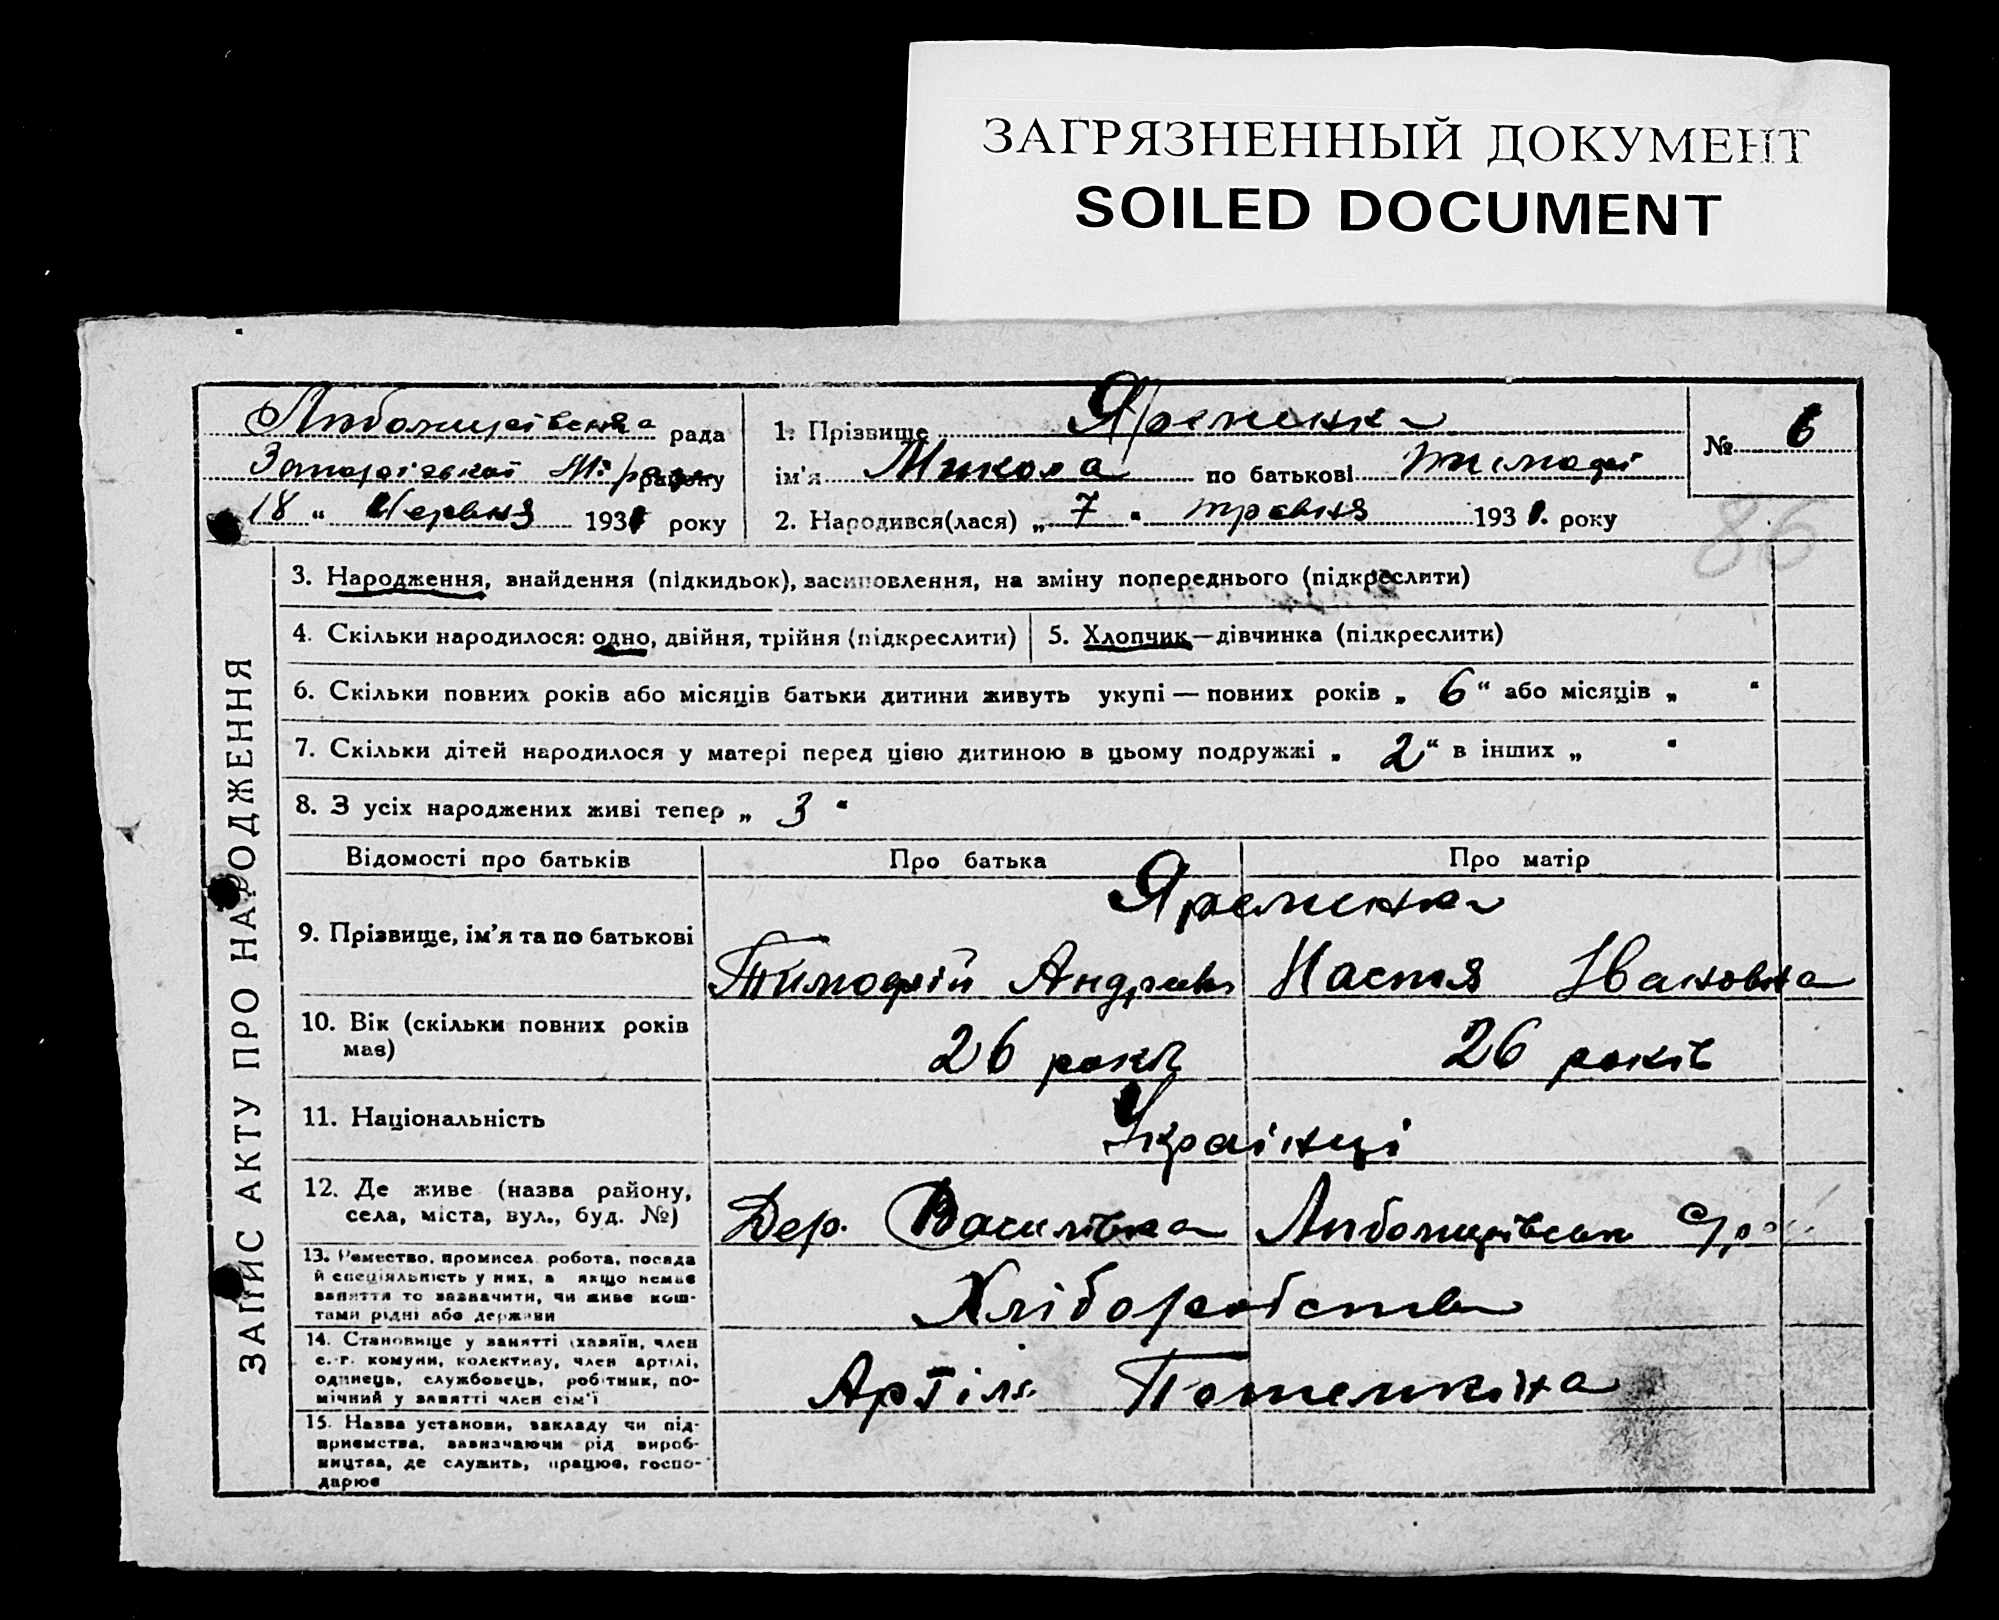 ЗАГРЯЗНЕННЫЙ ДОКУМЕНТ
SOILED DOCUMENT
Любомирівська рада
Запорізької Міс. району
18 " Червня 1931 року
1. Прізвище Яременко
ім'я Микола по батькові Тимофеї
2. Народився(лася) „ 7 " травня 1931. року
№ 6
86
ЗАПИС АКТУ ПРО НАРОДЖЕННЯ
3. Народження, знайдення (підкидьок), засиновлення, на зміну попереднього (підкреслити)
4. Скільки народилося: одно, двійня, трійня (підкреслити)
5. Хлопчик—дівчинка (підкреслити)
6. Скільки повних років або місяців батьки дитини живуть укупі — повних років „ 6 " або місяців „ "
7. Скільки дітей народилося у матері перед цією дитиною в цьому подружжі „ 2 " в інших „ "
8. З усіх народжених живі тепер „ 3 "
Відомості про батьків
Про батька
Про матір
9. Прізвище, ім'я та по батькові
Яременко
Тимофій Андрієв
Настя Івановна
10. Вік (скільки повних років
має)
26 років
26 років
11. Національність
Українці
12. Де живе (назва району,
села, міста, вул., буд. №)
Дер. Василівка Любомирівськ
13. Ремество, промисел, робота, посада
й спеціяльність у них, а якщо немає
заняття то зазначити, чи живе кош-
тами рідні або держави
Хліборобство
14. Становище у занятті (хазяїн, член
с.-г. комуни, колективу, член артілі,
одинець, службовець, робітник, по-
мічний у занятті член сім'ї
Артіль Потемкіна
15. Назва установи, закладу чи під-
приємства, зазначаючи рід вироб-
ництва, де служить, працює, госпо-
дарює